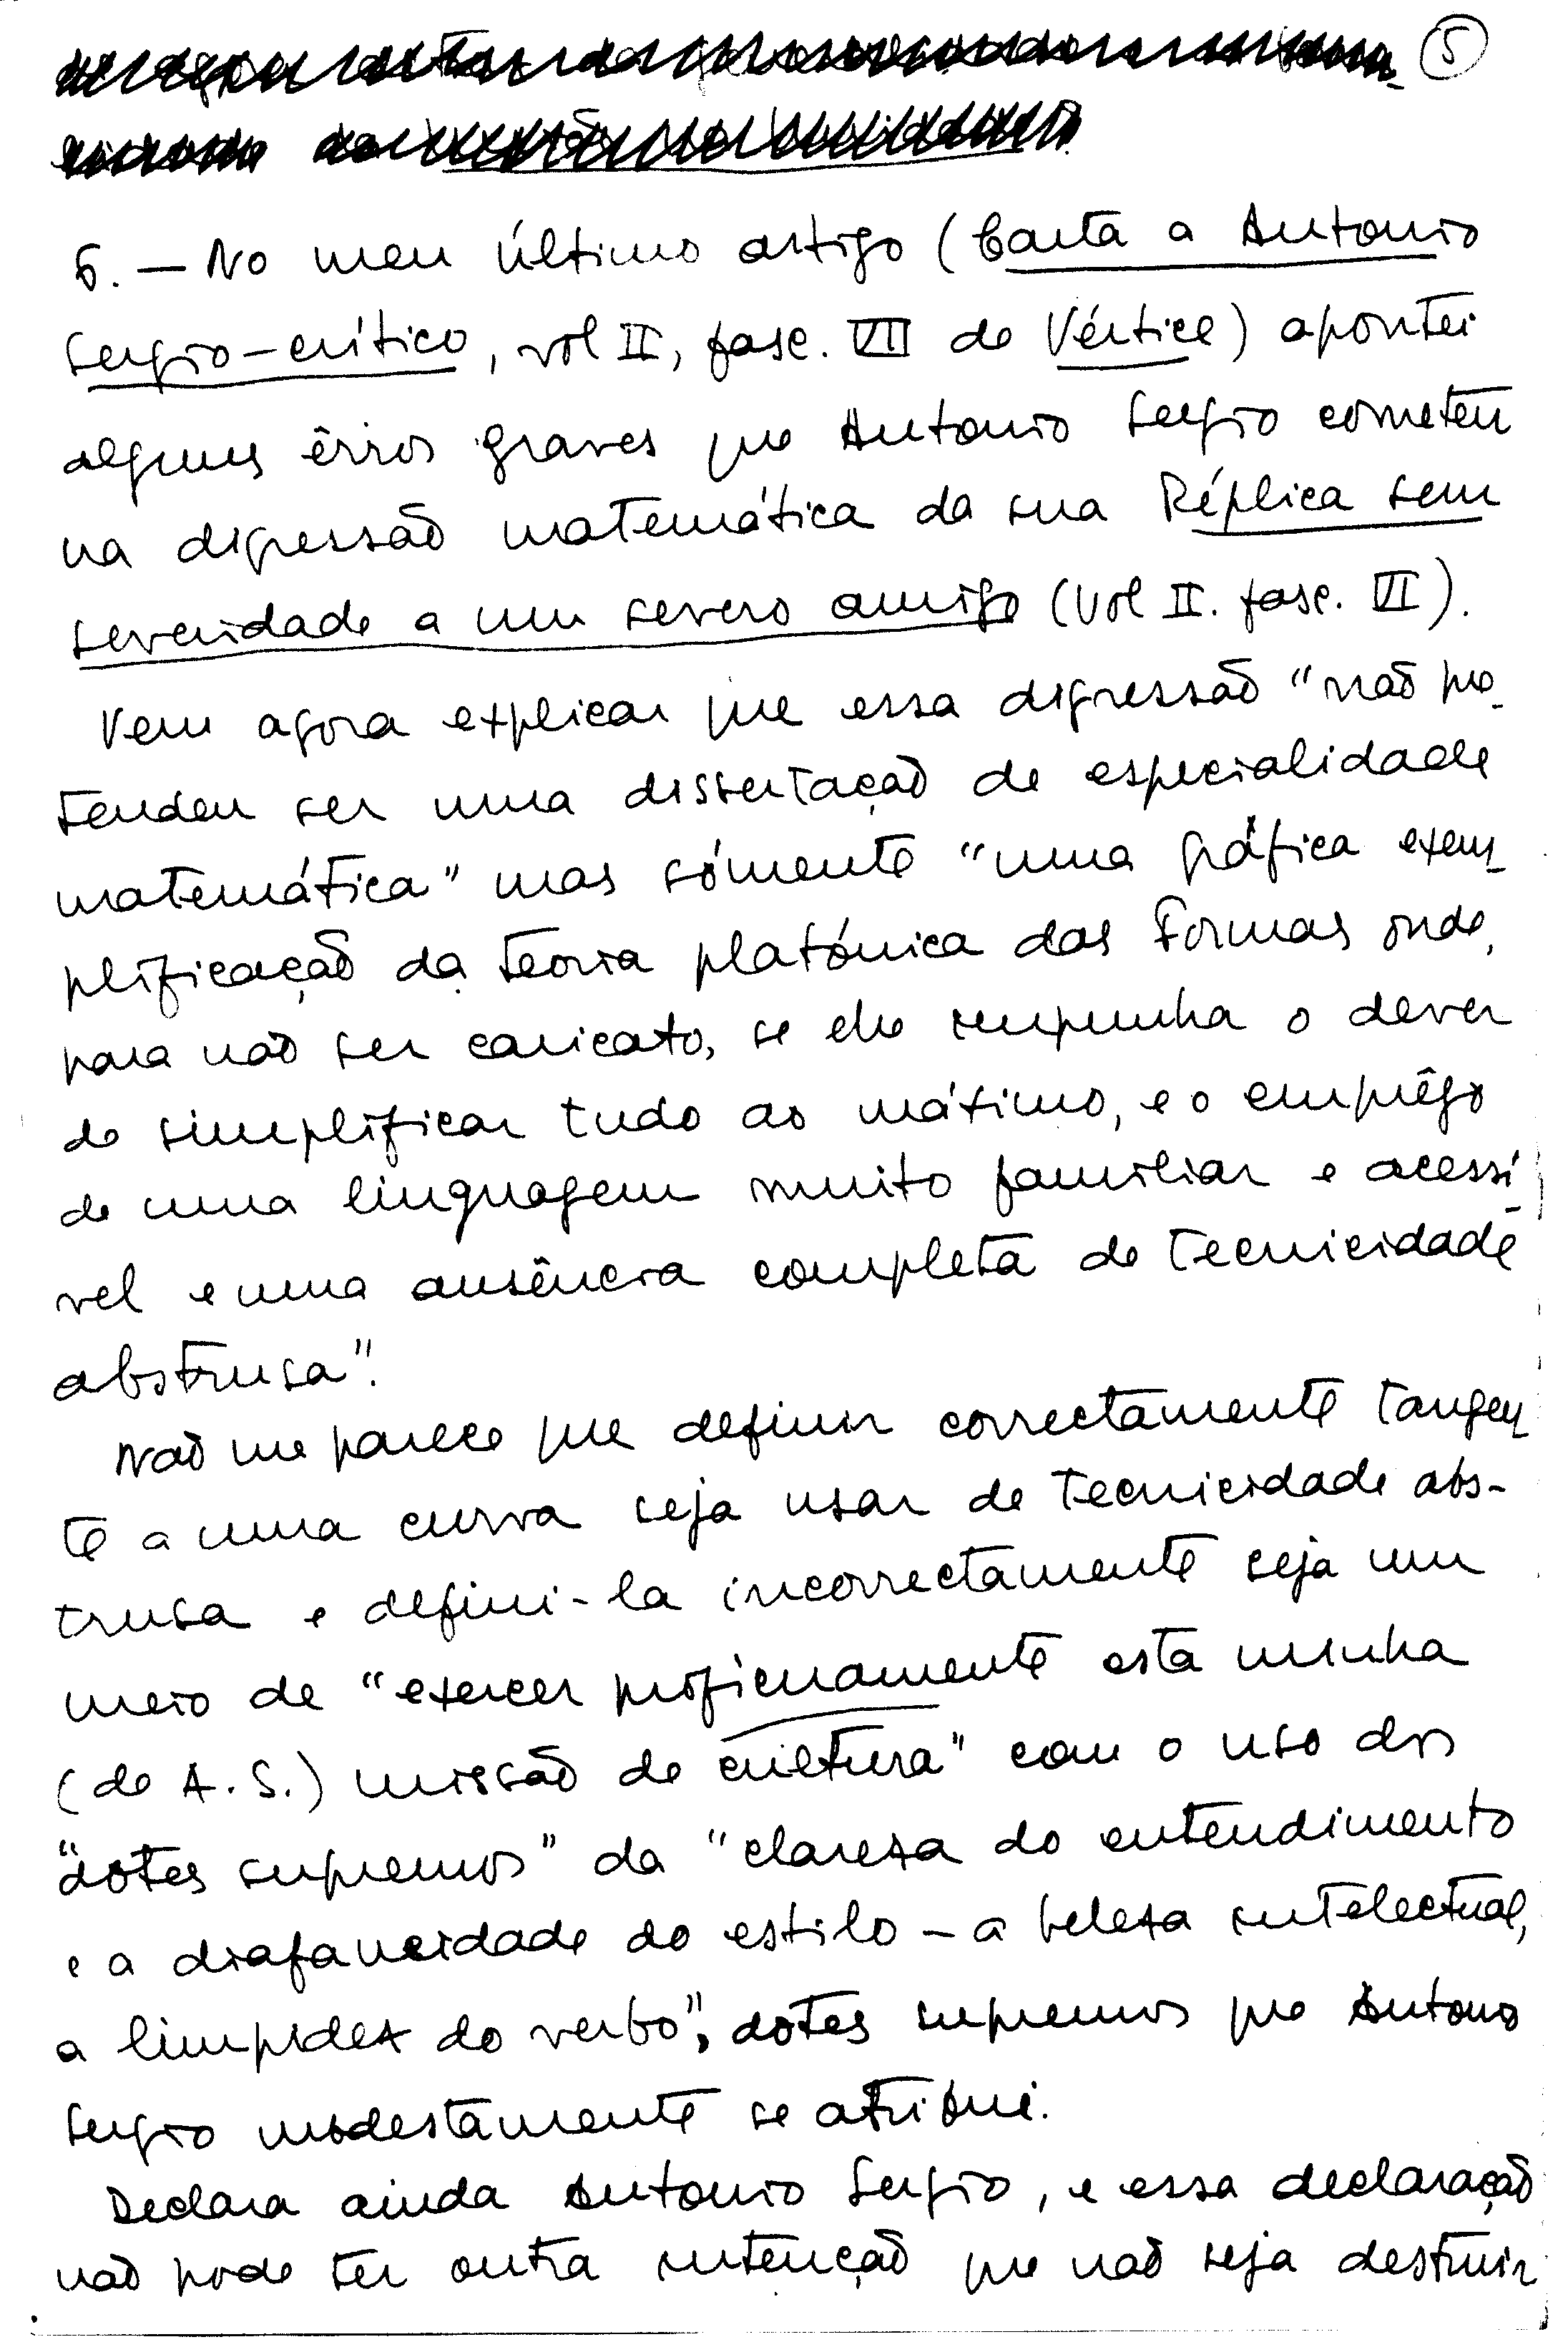 5
5. — No meu último artigo (Carta a Antonio
Sergio-crítico, vol II, fasc. VII de Vértice) apontei
alguns êrros graves que Antonio Sergio cometeu
na digressão matemática da sua Réplica sem
severidade a um severo amigo (vol II. fasc. VI).
Vem agora explicar que essa digressão "não pre-
tendeu ser uma dissertação de especialidade
matemática" mas sómente "uma gráfica exem-
plificação da teoria platónica das Formas onde,
para não ser caricato, se me impunha o dever
de simplificar tudo ao máximo, e o emprêgo
de uma linguagem muito familiar e acessí-
vel e uma ausência completa de tecnicidade
abstrusa".
Não me parece que definir correctamente tangen-
te a uma curva seja usar de tecnicidade abs-
trusa e defini-la incorrectamente seja um
meio de "exercer proficuamente esta minha
(de A. S.) missão de cultura" com o uso dos
"dotes supremos" da "clareza do entendimento
e a diafaneidade do estilo – a beleza intelectual,
a limpidez do verbo", dotes supremos que Antonio
Sergio modestamente se atribui.
Declara ainda Antonio Sergio, e essa declaração
não pode ter outra intenção que não seja destruir